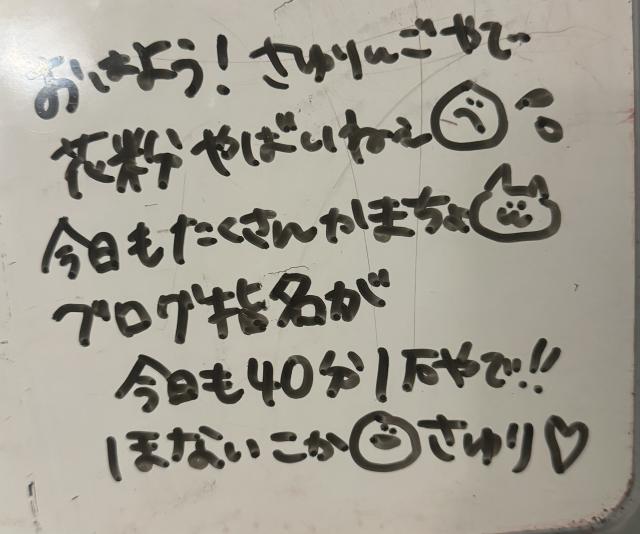 おはよう！さゆりんごやでー
花粉やばいねぇ
今日もたくさんかまちょ
ブログ指名が
今日も40分1万やで!!
ほないこか さゆり♡